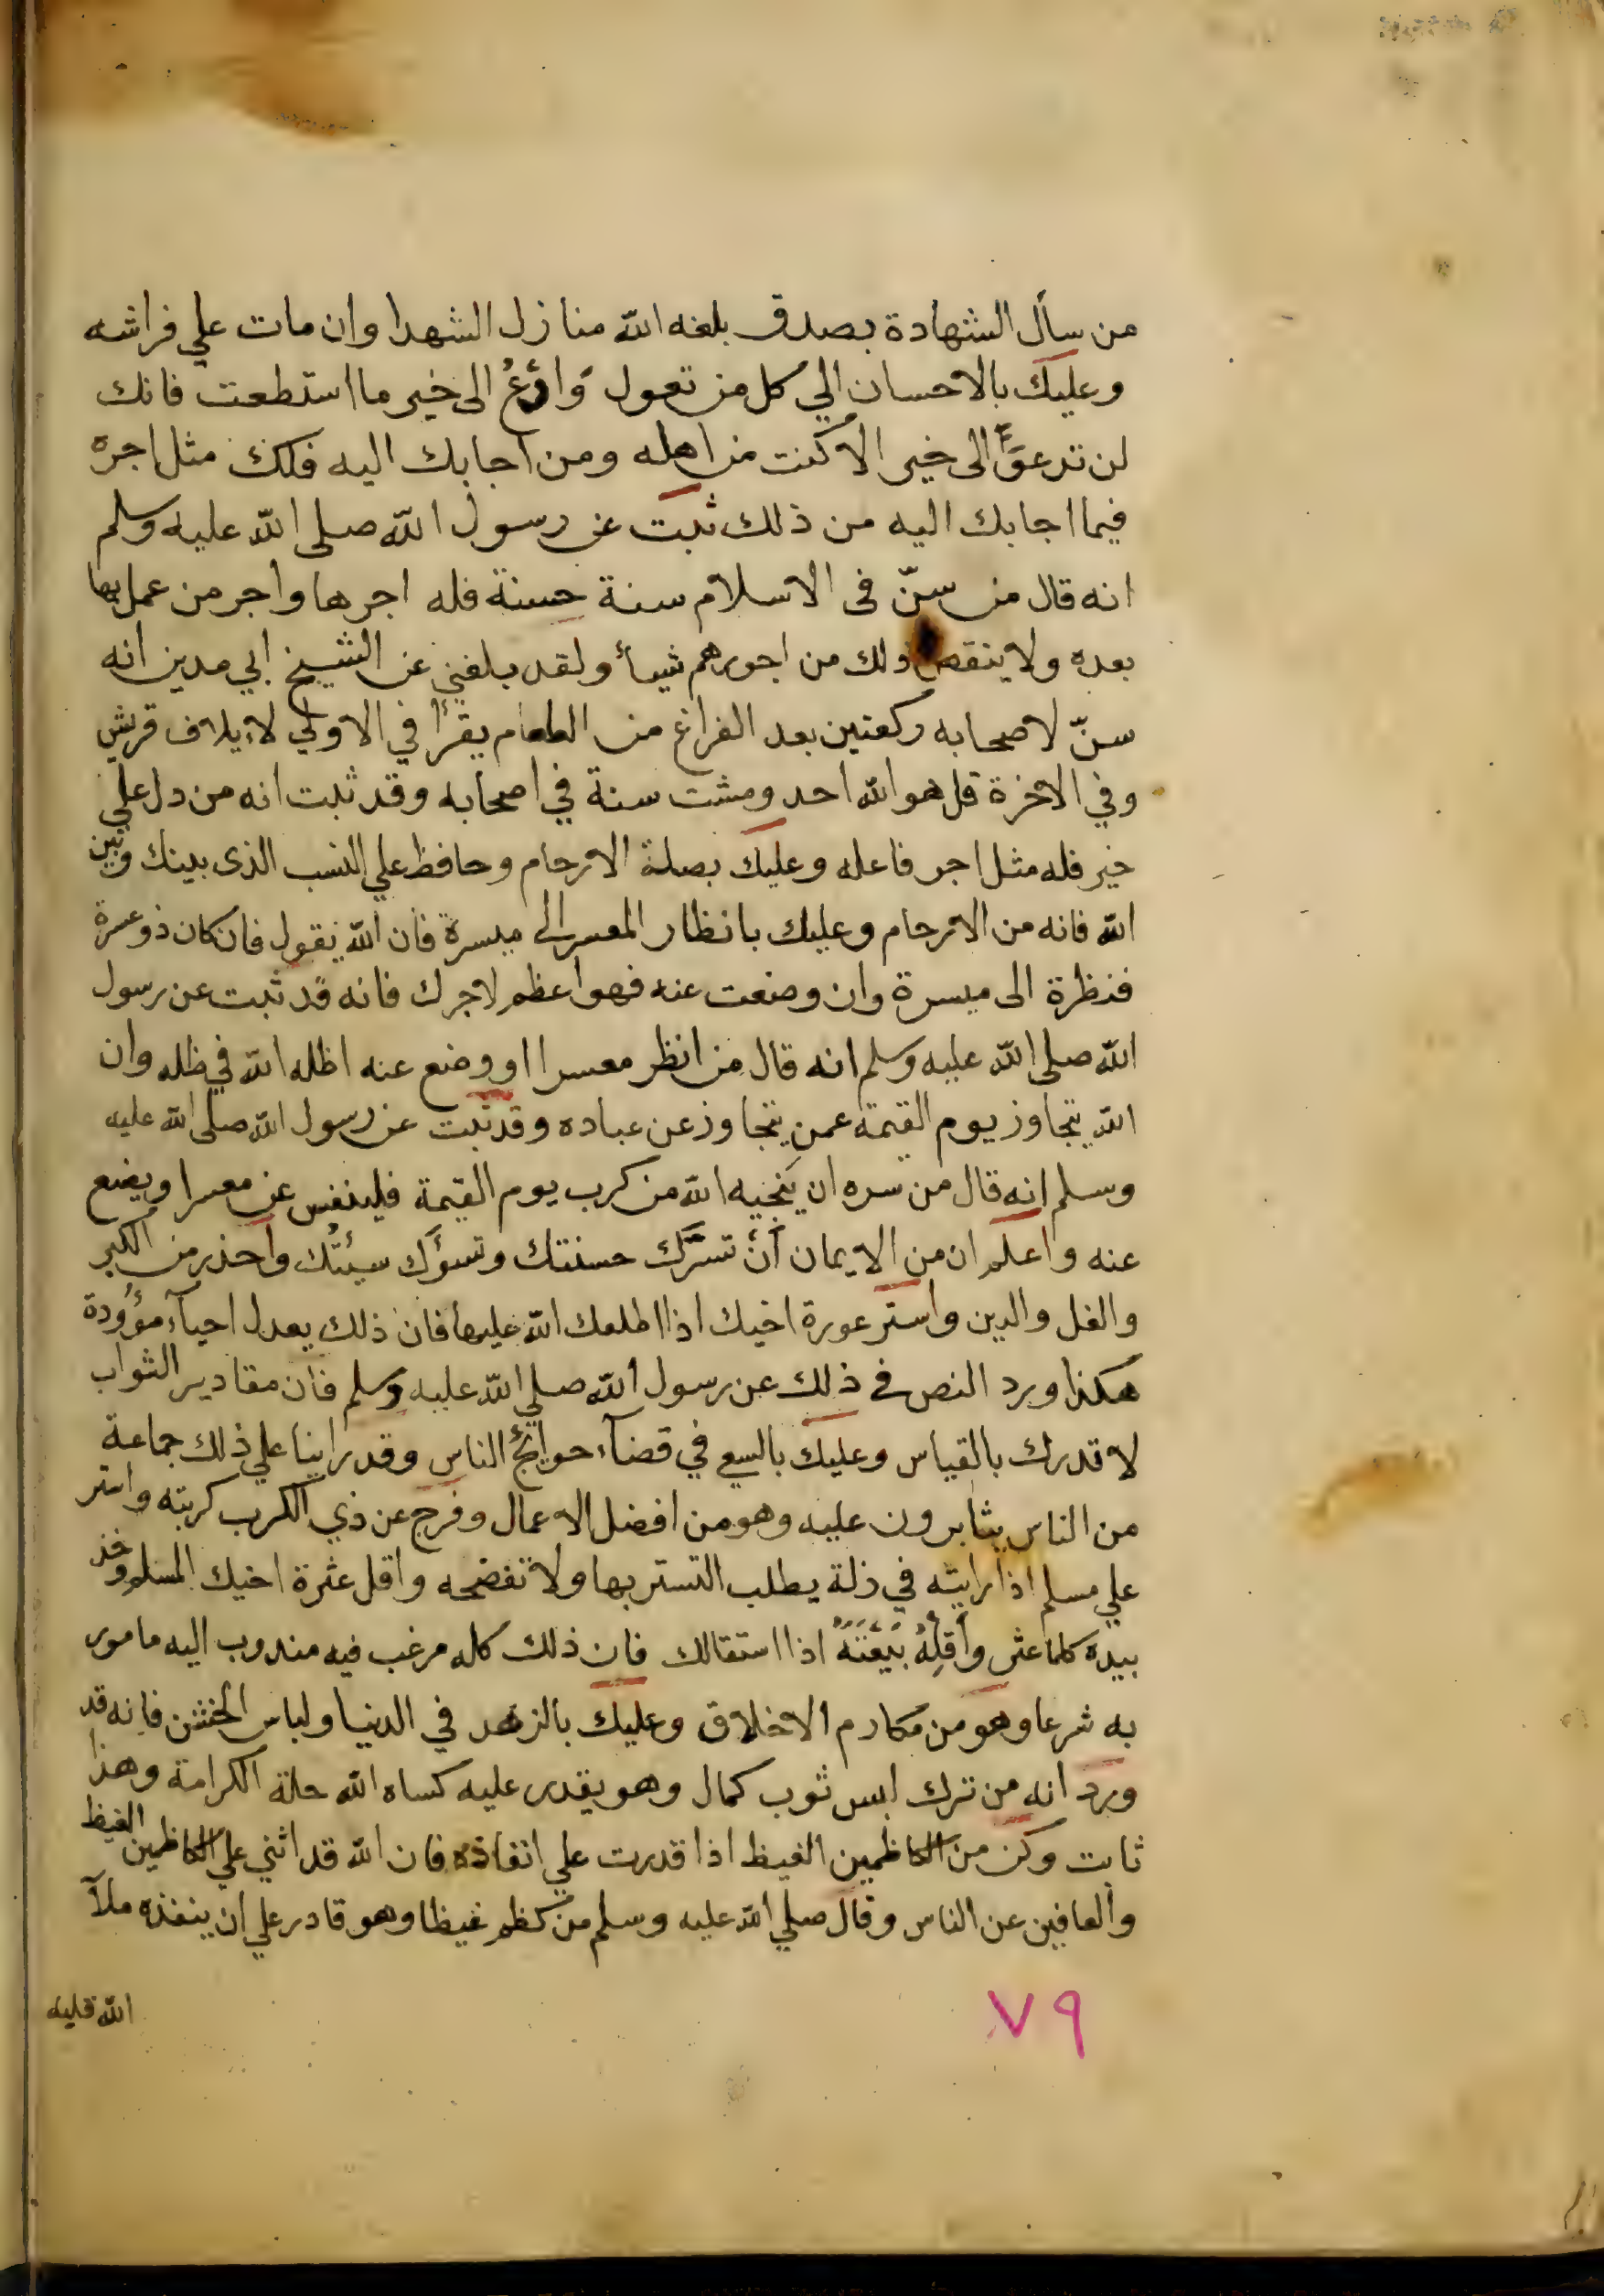 من سأل الشهادة بصدق بلغه الله منازل الشهدا وان مات علي فراشه
وعليك بالاحسان الي كل من تعول وَادْعُ الى خير ما استطعت فانك
لن تدعوَ الى خير الا كنت من اهله ومن اجابك اليه فلك مثل اجره
فيما اجابك اليه من ذلك ثبت عن رسول الله صلى الله عليه وسلم
انه قال من سنّ فى الاسلام سنة حسنة فله اجرها واجر من عمل بها
بعده ولا ينقص ذلك من اجورهم شيأ ولقد بلغني عن الشيخ ابي مدين انه
سنّ لاصحابه ركعتين بعد الفراغ من الطعام يقرأ في الاولي لايلاف قريش
وفي الاخرة قل هو الله احد ومشت سنة في اصحابه وقد ثبت انه من دل علي
خير فله مثل اجر فاعله وعليك بصلة الارحام وحافظ علي النسب الذى بينك وبين
الله فانه من الارحام وعليك بانظار المعسر الى ميسرة فان الله يقول فان كان ذو عسرة
فنظرة الى ميسرة وان وضعت عنه فهو اعظم لاجرك فانه قد ثبت عن رسول
الله صلى الله عليه وسلم انه قال من انظر معسرا او وضع عنه اظله الله في ظله وان
الله يتجاوز يوم القيمة عمن يتجاوز عن عباده وقد ثبت عن رسول الله صلى الله عليه
وسلم انه قال من سره ان ينجيه الله من كرب يوم القيمة فلينفس عن معسر او يضع
عنه واعلم ان من الايمان أنْ تسرَّك حسنتك وتسؤَك سيئتُك واحذر من الكبر
والغل والدين واستر عورة اخيك اذا اطلعك الله عليها فان ذلك يعدل احيآء مؤُودة
هكذا ورد النص في ذلك عن رسول الله صلي الله عليه وسلم فان مقادير الثواب
لا تدرك بالقياس وعليك بالسعي في قضآء حوايجُ الناس وقد راينا علي ذلك جماعة
من الناس يثابرون عليه وهو من افضل الاعمال وفرج عن ذي الكرب كربته واستر
علي مسلم اذا رايته في زلة يطلب التستر بها ولا تفضحه واقل عثرة اخيك المسلم وخذ
بيده كلما عثر وأَقِلْهُ بَيْعَتَهُ اذا استقالك فان ذلك كله مرغب فيه مندوب اليه مامور
به شرعا وهو من مكارم الاخلاق وعليك بالزهد في الدنيا ولباس الخشن فانه قد
ورد انه من ترك لبس ثوب كمال وهو يقدر عليه كساه الله حلة الكرامة وهذا
ثابت وكن من الكاظمين الغيظ اذا قدرت علي انفاذه فان الله قد اثني علي الكاظمين الغيظ
والعافين عن الناس وقال صلي الله عليه وسلم من كظم غيظا وهو قادر علي ان ينفذه ملآ
الله قلبه
٧٩